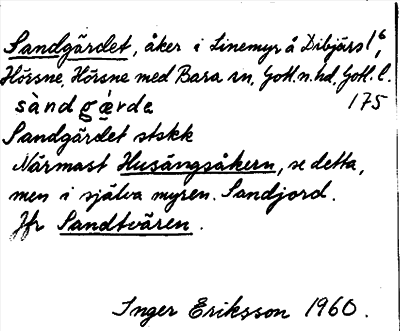 Sandgärdet, åker i Linemyr å Dibjärs 1⁶,
Hörsne, Hörsne med Bara sn, Gotl.n.hd, Gotl. l.
sàndgǽrde 175
Sandgärdet stskk
Närmast Husängsåkern, se detta,
men i själva myren. Sandjord.
Jfr Sandtvären.
Inger Eriksson 1960.